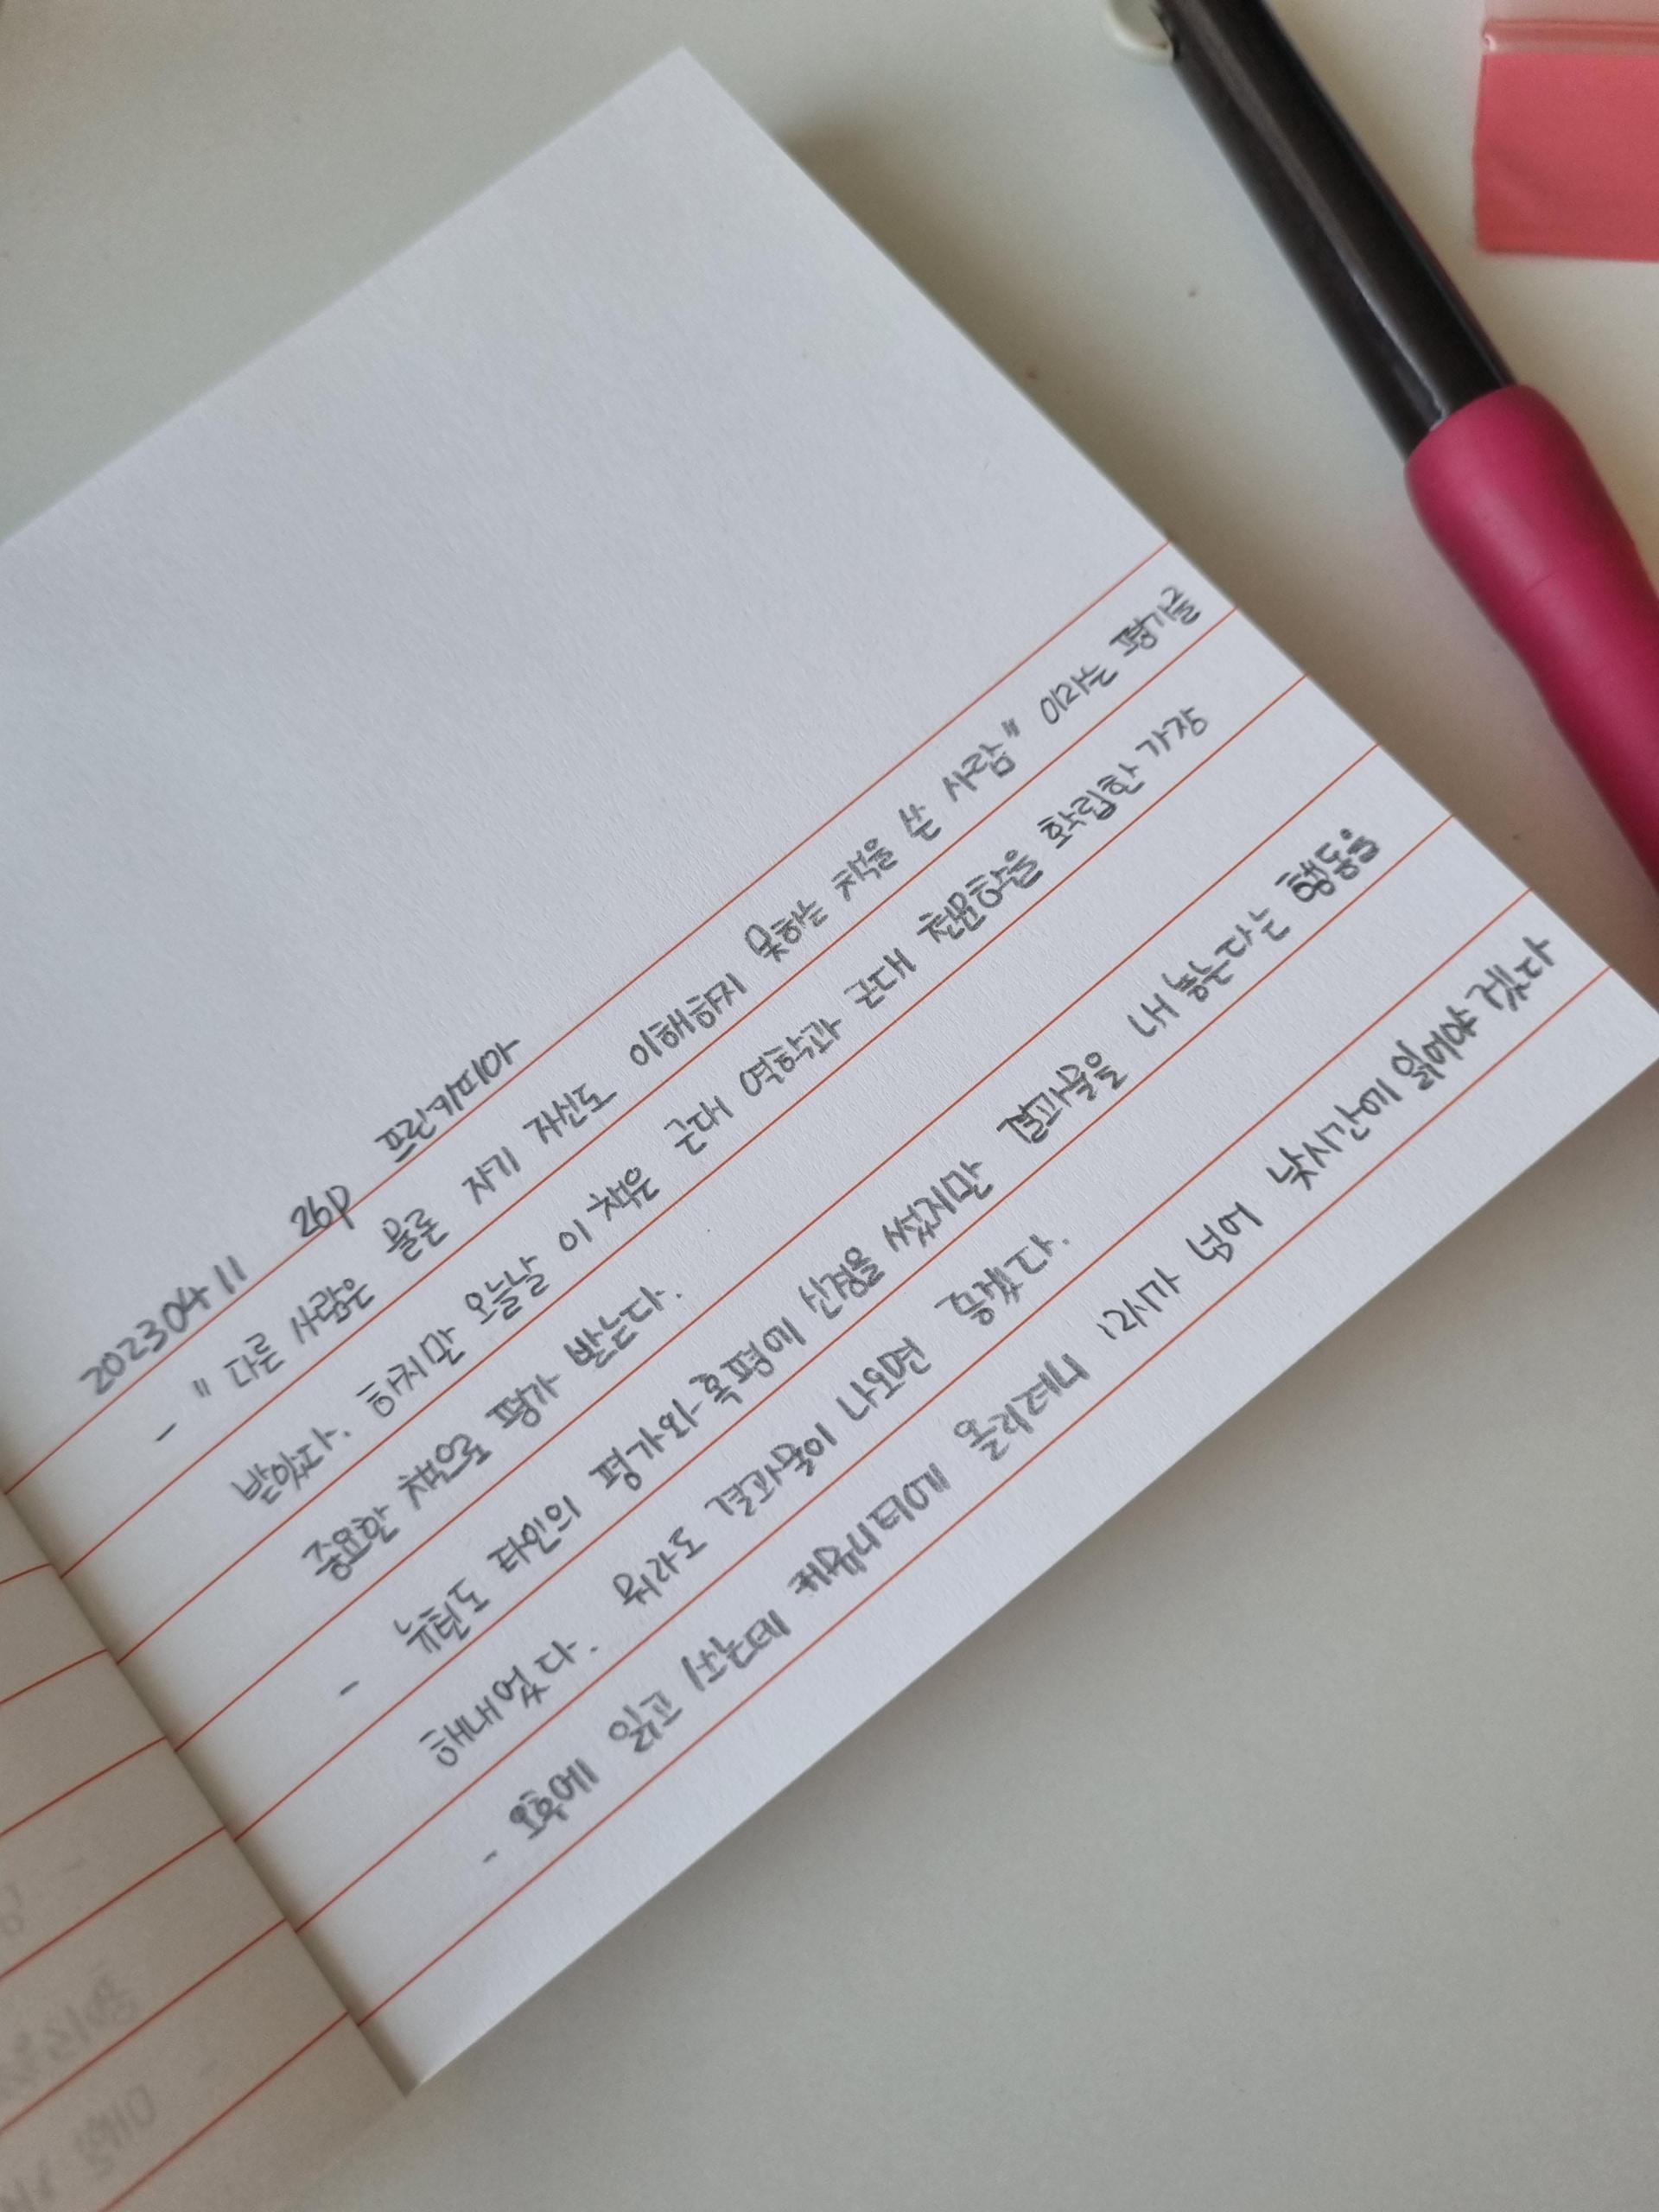 20230411 26p 프린키피아
- "다른 사람은 물론 자기 자신도 이해하지 못하는 책을 쓴 사람" 이라는 평가를
받았다. 하지만 오늘날 이 책은 근대 역학과 근대 천문학을 확립한 가장
중요한 책으로 평가 받는다.
- 뉴턴도 타인의 평가와 혹평에 신경을 썼지만 결과물을 내 놓는다는 행동을
해내었다. 뭐라도 결과물이 나오면 좋겠다.
- 오후에 읽고 쓰는데 커뮤니티에 올리려니 12시가 넘어 낮시간에 읽어야 겠다